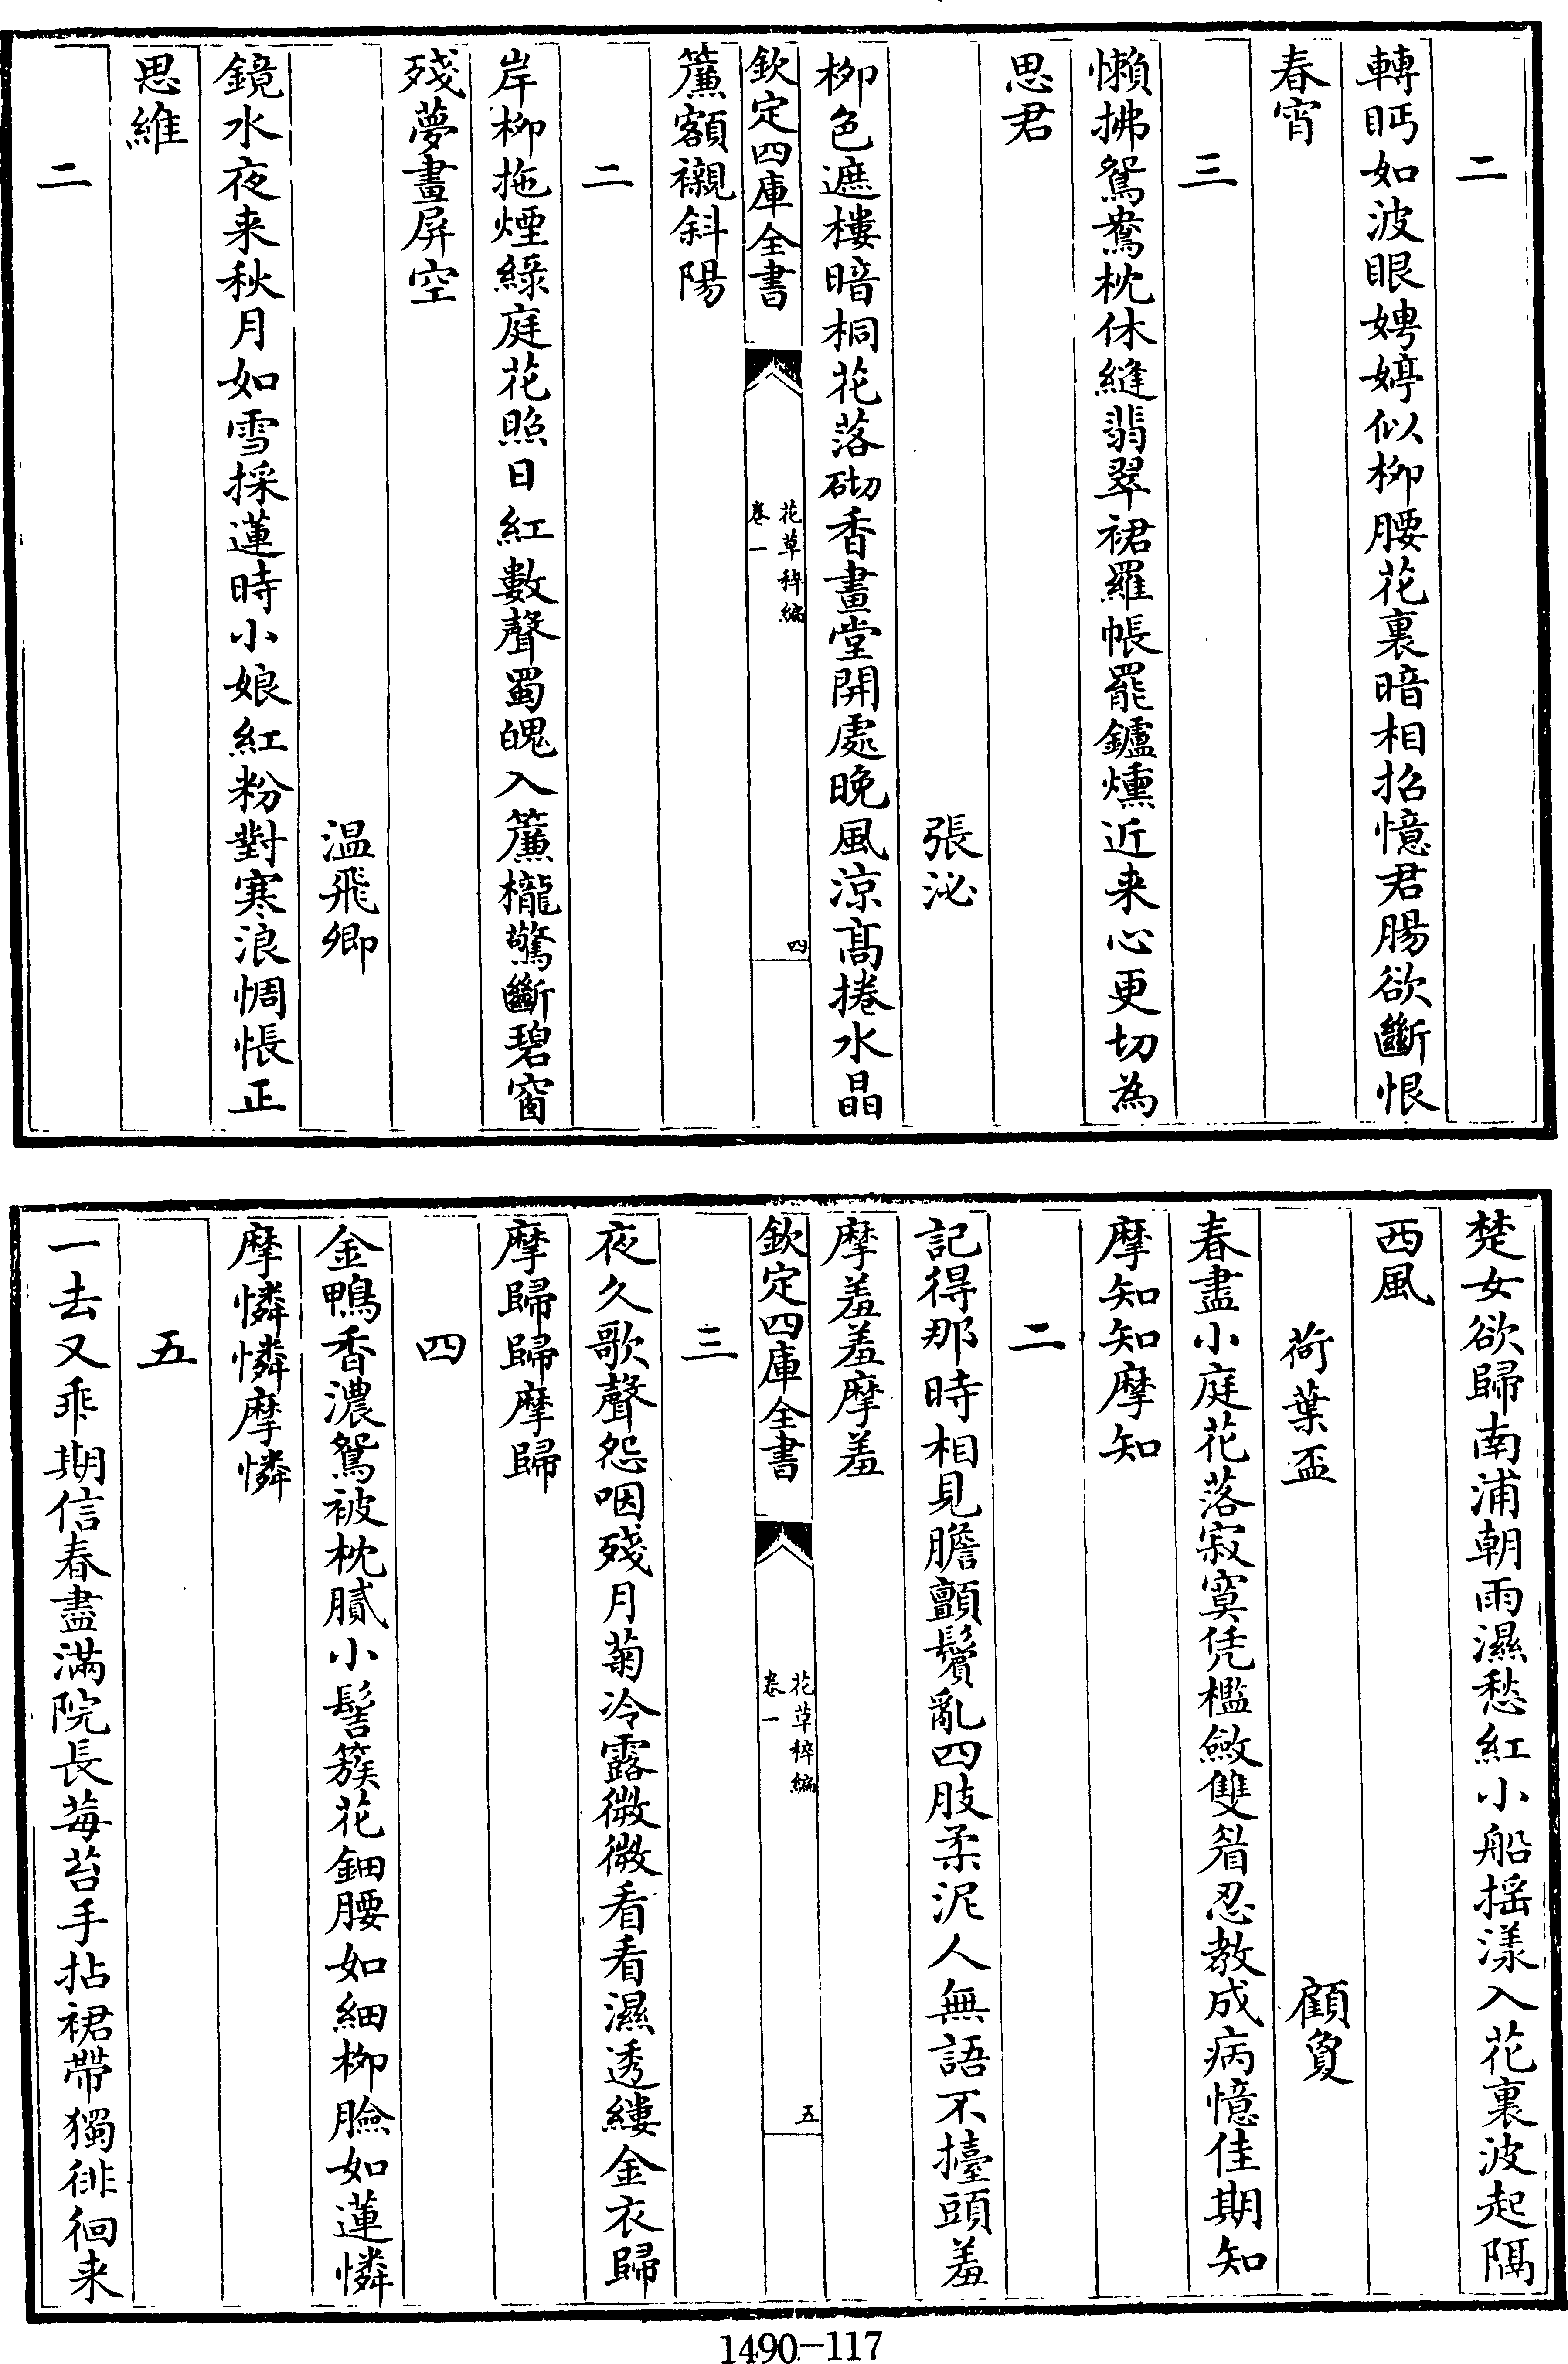 二
轉眄如波眼娉婷似柳腰花裏暗相招憶君腸欲斷恨
春宵
三
懶拂鴛鴦枕休縫翡翠裙羅帳罷鑪燻近来心更切為
思君
張泌
柳色遮樓暗桐花落砌香畫堂開處晚風涼髙捲水晶
欽定四庫全書
花草稡編
卷一
四
簾額襯斜陽
二
岸柳拖煙綠庭花照日紅數聲蜀魄入簾櫳驚斷碧窗
殘夢畫屏空
温飛卿
鏡水夜来秋月如雪採蓮時小娘紅粉對寒浪惆悵正
思維
二
楚女欲歸南浦朝雨濕愁紅小船揺漾入花裏波起隔
西風
荷葉盃
顧敻
春盡小庭花落寂寞凭檻斂雙眉忍教成病憶佳期知
摩知知摩知
二
記得那時相見膽顫鬢亂四肢柔泥人無語不擡頭羞
摩羞羞摩羞
欽定四庫全書
花草稡編
卷一
五
三
夜久歌聲怨咽殘月菊冷露微微看看濕透縷金衣歸
摩歸歸摩歸
四
金鴨香濃鴛被枕膩小髻簇花鈿腰如細柳臉如蓮憐
摩憐憐摩憐
五
一去又乖期信春盡滿院長莓苔手拈裙帶獨徘徊来
1490-117